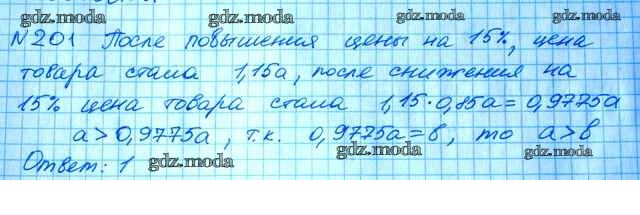 gdz.moda gdz.moda gdz.moda
№201 После повышения цены на 15%, цена
gdz.moda gdz.moda gdz.moda
товара стала 1,15a, после снижения на
15% цена товара стала 1,15·0,85a=0,9775a
gdz.moda gdz.moda gdz.moda
a>0,9775a, т.к. 0,9775a=b, то a>b
Ответ: 1
gdz.moda gdz.moda gdz.moda